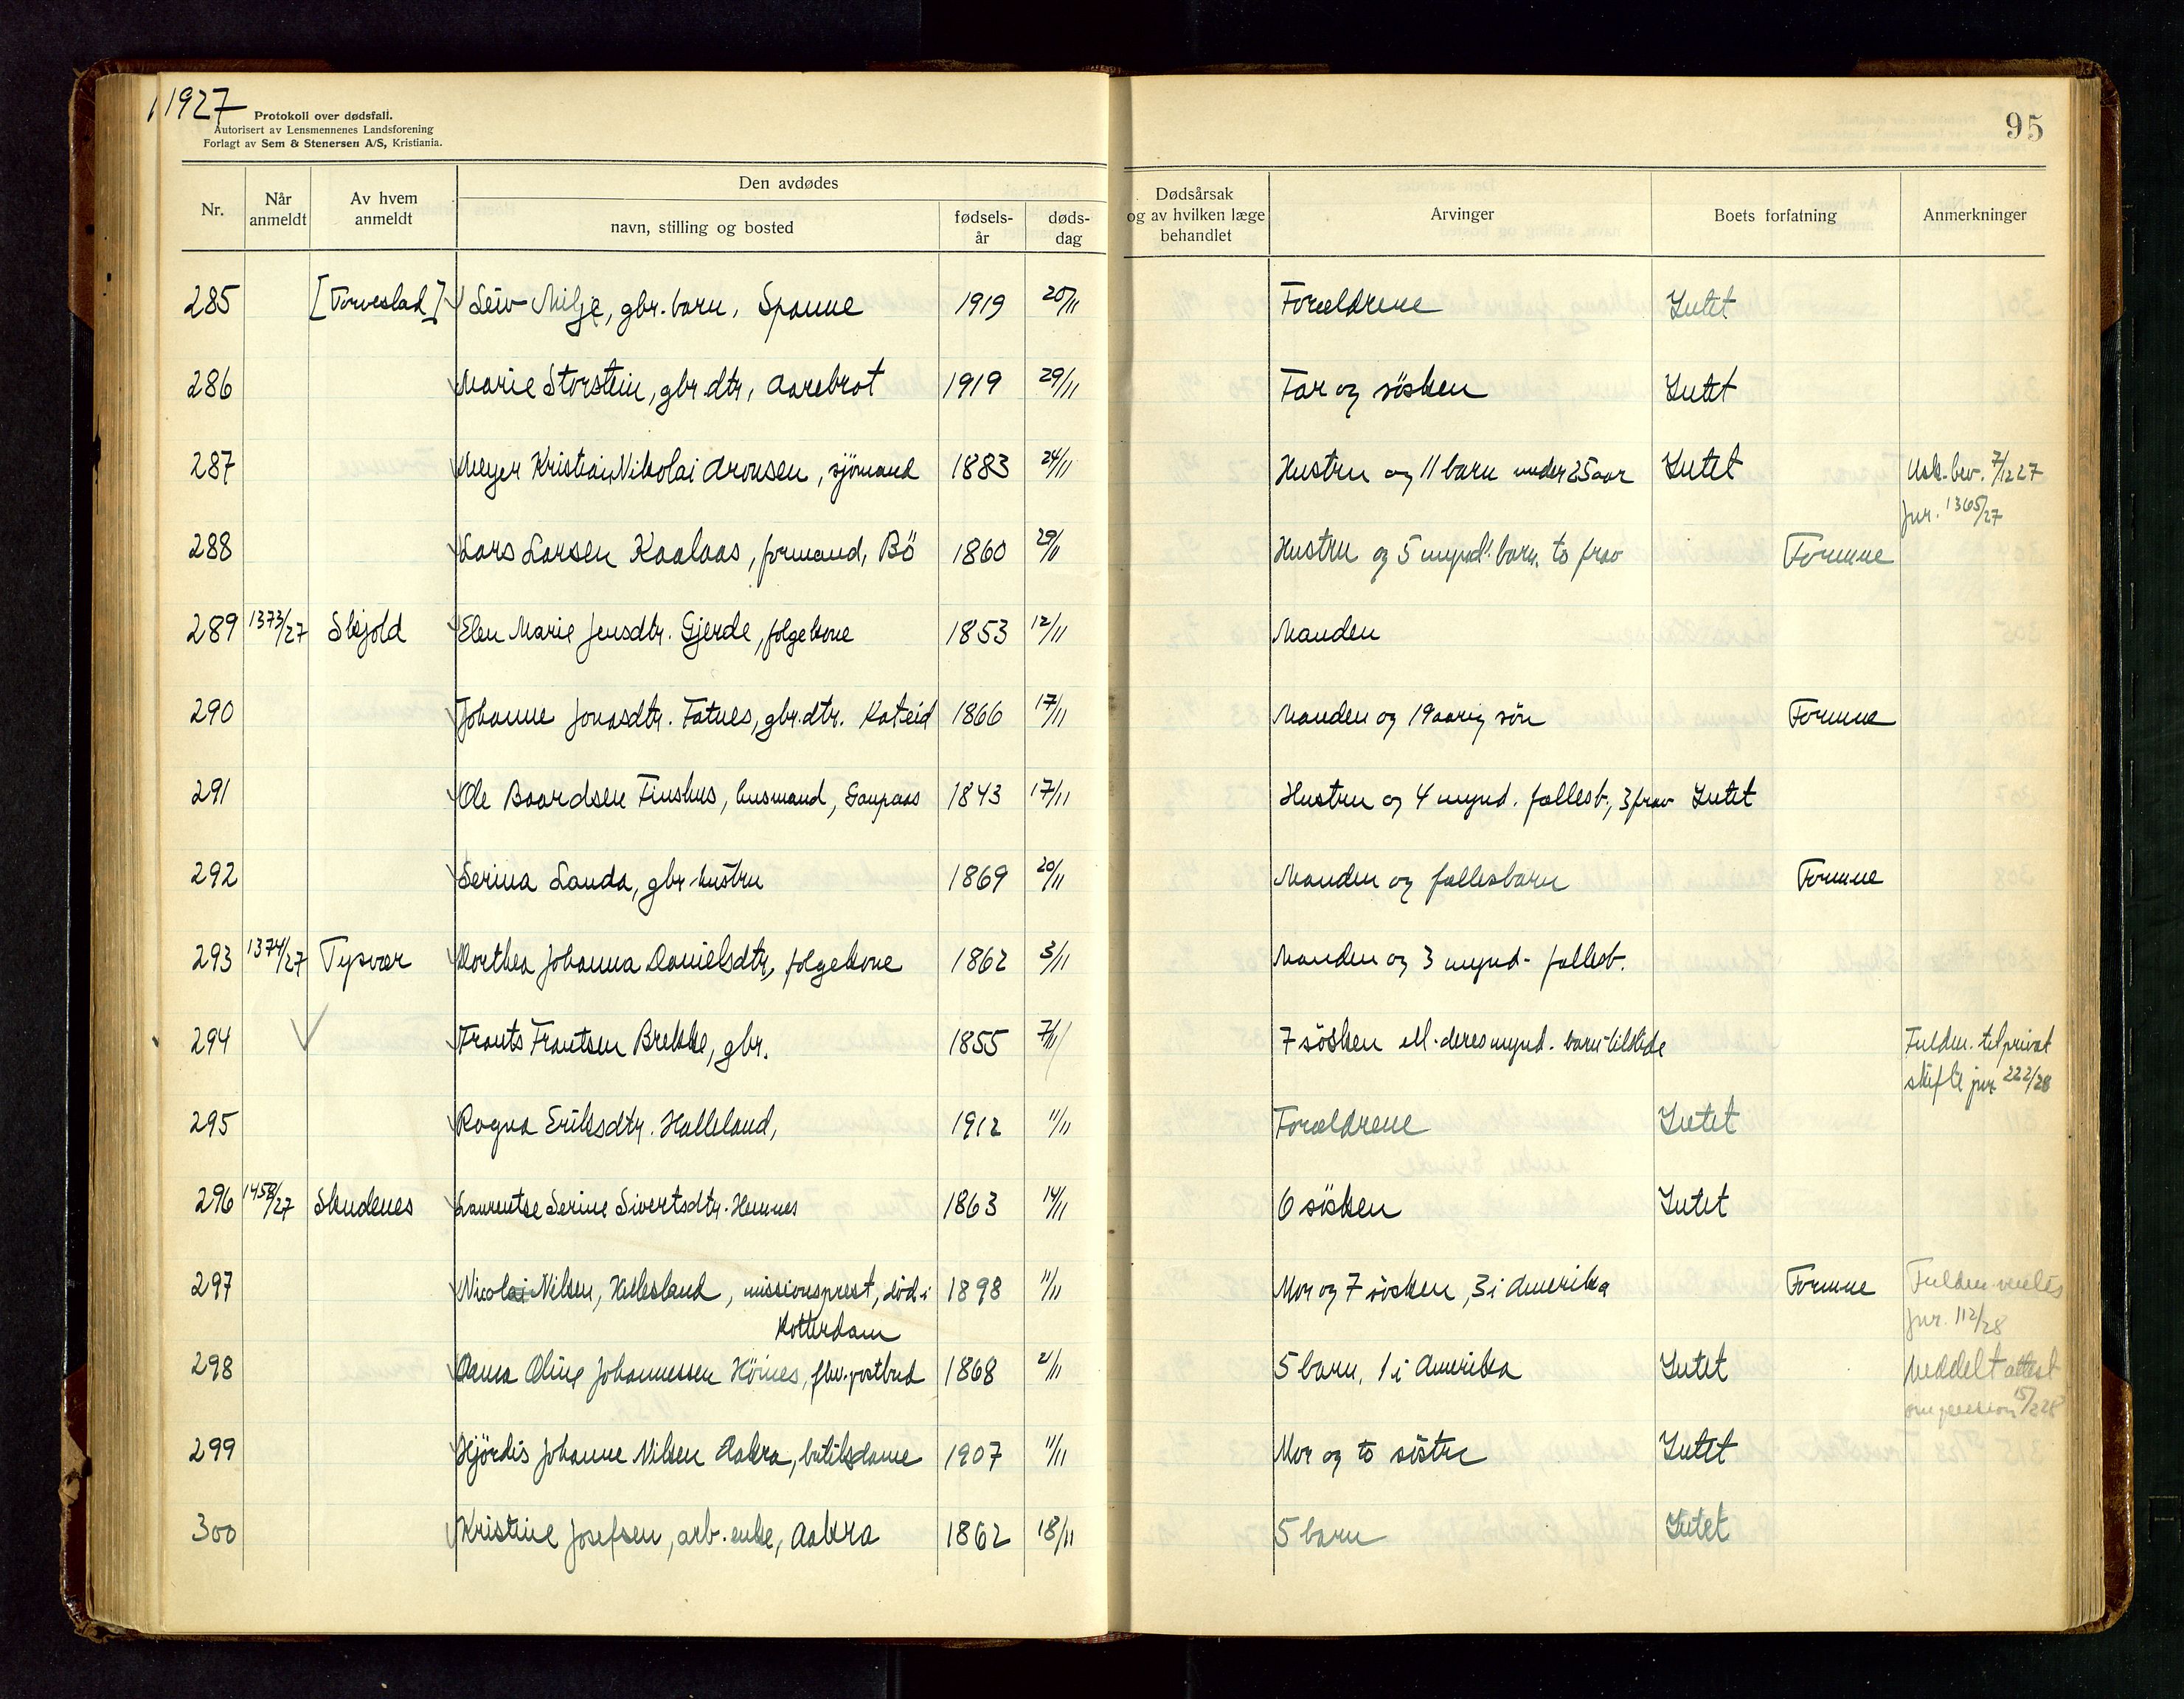 1927
Protokoll over dødsfall.
Autorisert av Lensmennenes Landsforening
Forlagt av Sem & Stenersen A/S, Kristiania.
95
Nr. Når anmeldt Av hvem anmeldt Den avdødes navn, stilling og bosted fødselsår dødsdag Dødsårsak og av hvilken læge behandlet Arvinger Boets forfatning Anmerkninger
285 [Torvestad] Leiv Milje, gbr. barn, Spanne 1919 20/11 Forældrene Intet
286 Marie Storstein, gbr. dtr, Aarebrot 1919 29/11 Far og søsken Intet
287 Meyer Kristian Nikolai Aronsen, sjömand 1883 24/11 Hustru og 11 barn under 25 aar Intet Usk. bev. 7/12 27
jnr. 1365/27
288 Lars Larsen Kaalaas, formand, Bö 1860 29/11 Hustru og 5 mynd. barn, to frav Formue
289 1373/27 Skjold Elen Marie Jensdtr. Gjerde, folgekone 1853 12/11 Manden
290 Johanne Jonasdtr. Fatnes, gbr. dtr. Kateid 1866 17/11 Manden og 19 aarig sön Formue
291 Ole Baardsen Finshus, husmand, Gaupaas 1843 17/11 Hustru og 4 mynd. fællesb., 3 frav Intet
292 Serina Landa, gbr. hustru 1869 20/11 Manden og fællesbarn Formue
293 1374/27 Tysvær Dorthea Johanna Danielsdtr, folgekone 1862 3/11 Manden og 3 mynd. fællesb.
294 Frants Frantsen Brekke, gbr. 1855 7/11 7 sösken ell. deres mynd. barn tilstede Fuldm. til privat
skifte jnr. 222/28
295 Ragna Eriksdtr. Halleland, 1912 11/11 Forældrene Intet
296 1458/27 Skudenes Laurentse Serine Sivertsdtr. Hemnes 1863 14/11 6 søsken Intet
297 Nicolai Nilsen, Hillesland, missionsprest, död i 1898 11/11 Mor og 7 søsken, 3 i Amerika Formue Fuldm.
Rotterdam jnr. 112/28
298 Oline Johannessen Hörnes, fhv. postbud 1868 21/11 5 barn, 1 i Amerika Intet Meddelt attest
om pension 15/2 28
299 Hjördis Johanne Nilsen Aakra, butiksdame 1907 11/11 Mor og to søstre Intet
300 Kristine Josefsen, arb. enke, Aakra 1862 18/11 5 barn Intet